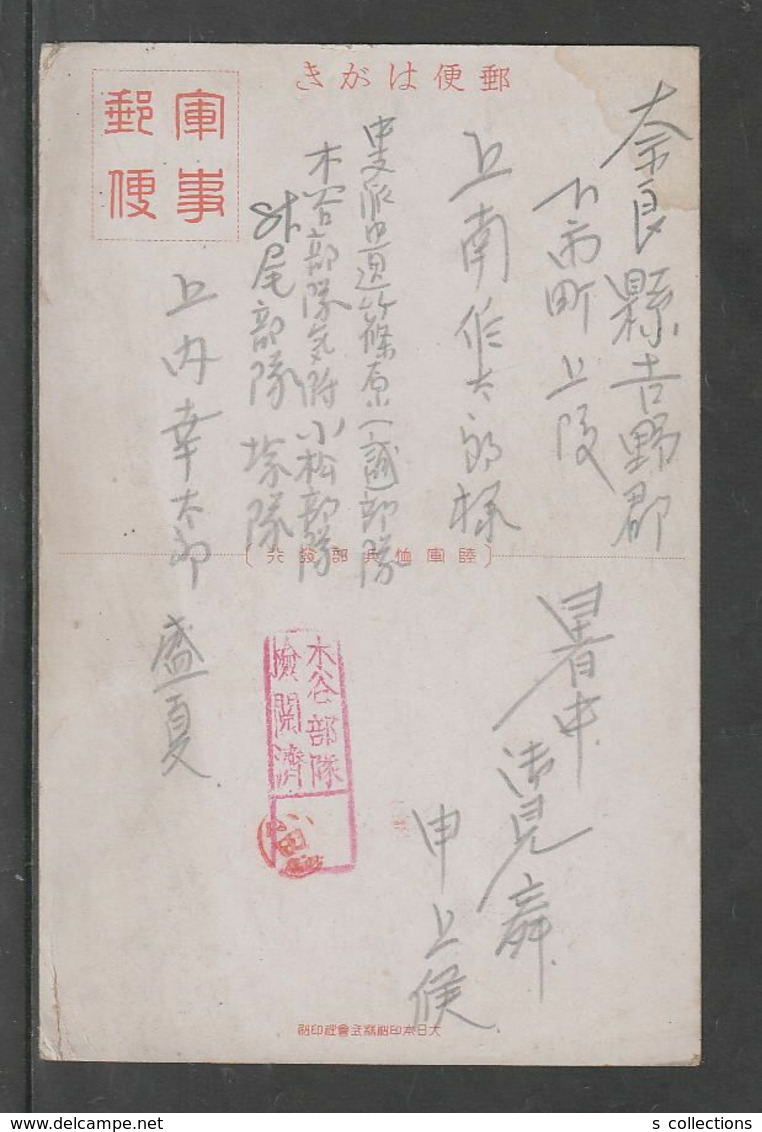 郵便はがき
軍事
郵便
奈良縣吉野郡
下市町上
上南
様
中支派遣
篠原(誠)部隊
木谷部隊気附小松部隊
尾部隊 塚隊
上内幸太郎
盛夏
〔陸軍恤兵部發行〕
暑中御見舞
申上候
木谷部隊
檢閲濟
小田
大日本印刷株式會社印刷
s collections